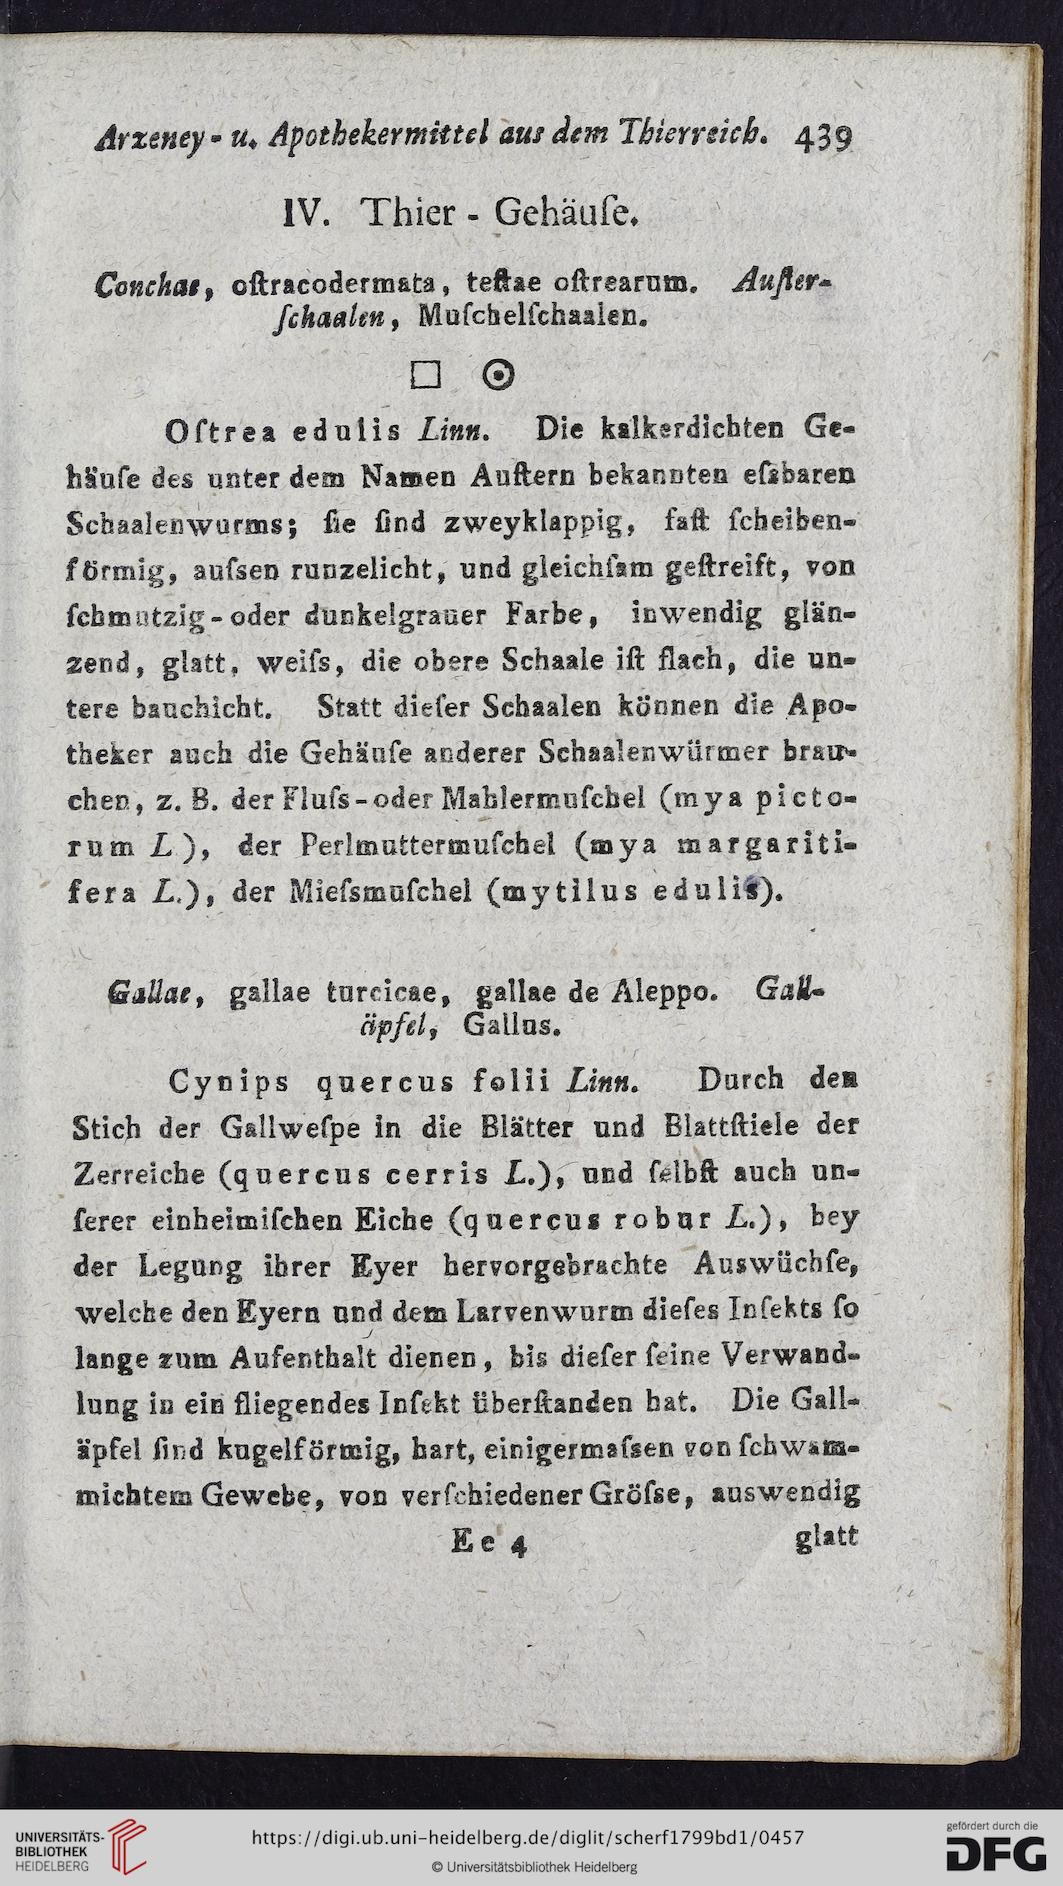 Arzeney- u. Apothekermittel aus dem Thierreich. 439
IV. Thier - Gehäuſe.
Conchae, oſtracodermata, teſtae oſtrearum. Auſter-
ſchaalen, Muſchelſchaalen.
□ ☉
Oſtrea edulis Linn. Die kalkerdichten Ge-
häuſe des unter dem Namen Auſtern bekannten eſsbaren
Schaalenwurms; ſie ſind zweyklappig, faſt ſcheiben-
förmig, auſsen runzelicht, und gleichſam geſtreift, von
ſchmutzig-oder dunkelgrauer Farbe, inwendig glän-
zend, glatt, weiſs, die obere Schaale iſt flach, die un-
tere bauchicht. Statt dieſer Schaalen können die Apo-
theker auch die Gehäuſe anderer Schaalenwürmer brau-
chen, z. B. der Fluſs-oder Mahlermuſchel (mya picto-
rum L), der Perlmuttermuſchel (mya margariti-
fera L.), der Mieſsmuſchel (mytilus edulis).
Gallae, gallae turcicae, gallae de Aleppo. Gall-
äpfel, Gallus.
Cynips quercus folii Linn. Durch den
Stich der Gallweſpe in die Blätter und Blattſtiele der
Zerreiche (quercus cerris L.), und ſelbſt auch un-
ſerer einheimiſchen Eiche (quercus robur L.), bey
der Legung ihrer Eyer hervorgebrachte Auswüchſe,
welche den Eyern und dem Larvenwurm dieſes Inſekts ſo
lange zum Aufenthalt dienen, bis dieſer ſeine Verwand-
lung in ein fliegendes Inſekt überſtanden hat. Die Gall-
äpfel ſind kugelförmig, hart, einigermaſsen von ſchwam-
michtem Gewebe, von verſchiedener Gröſse, auswendig
Ee 4 glatt
UNIVERSITÄTS-
BIBLIOTHEK
HEIDELBERG
https://digi.ub.uni-heidelberg.de/diglit/scherf1799bd1/0457
© Universitätsbibliothek Heidelberg
gefördert durch die
DFG